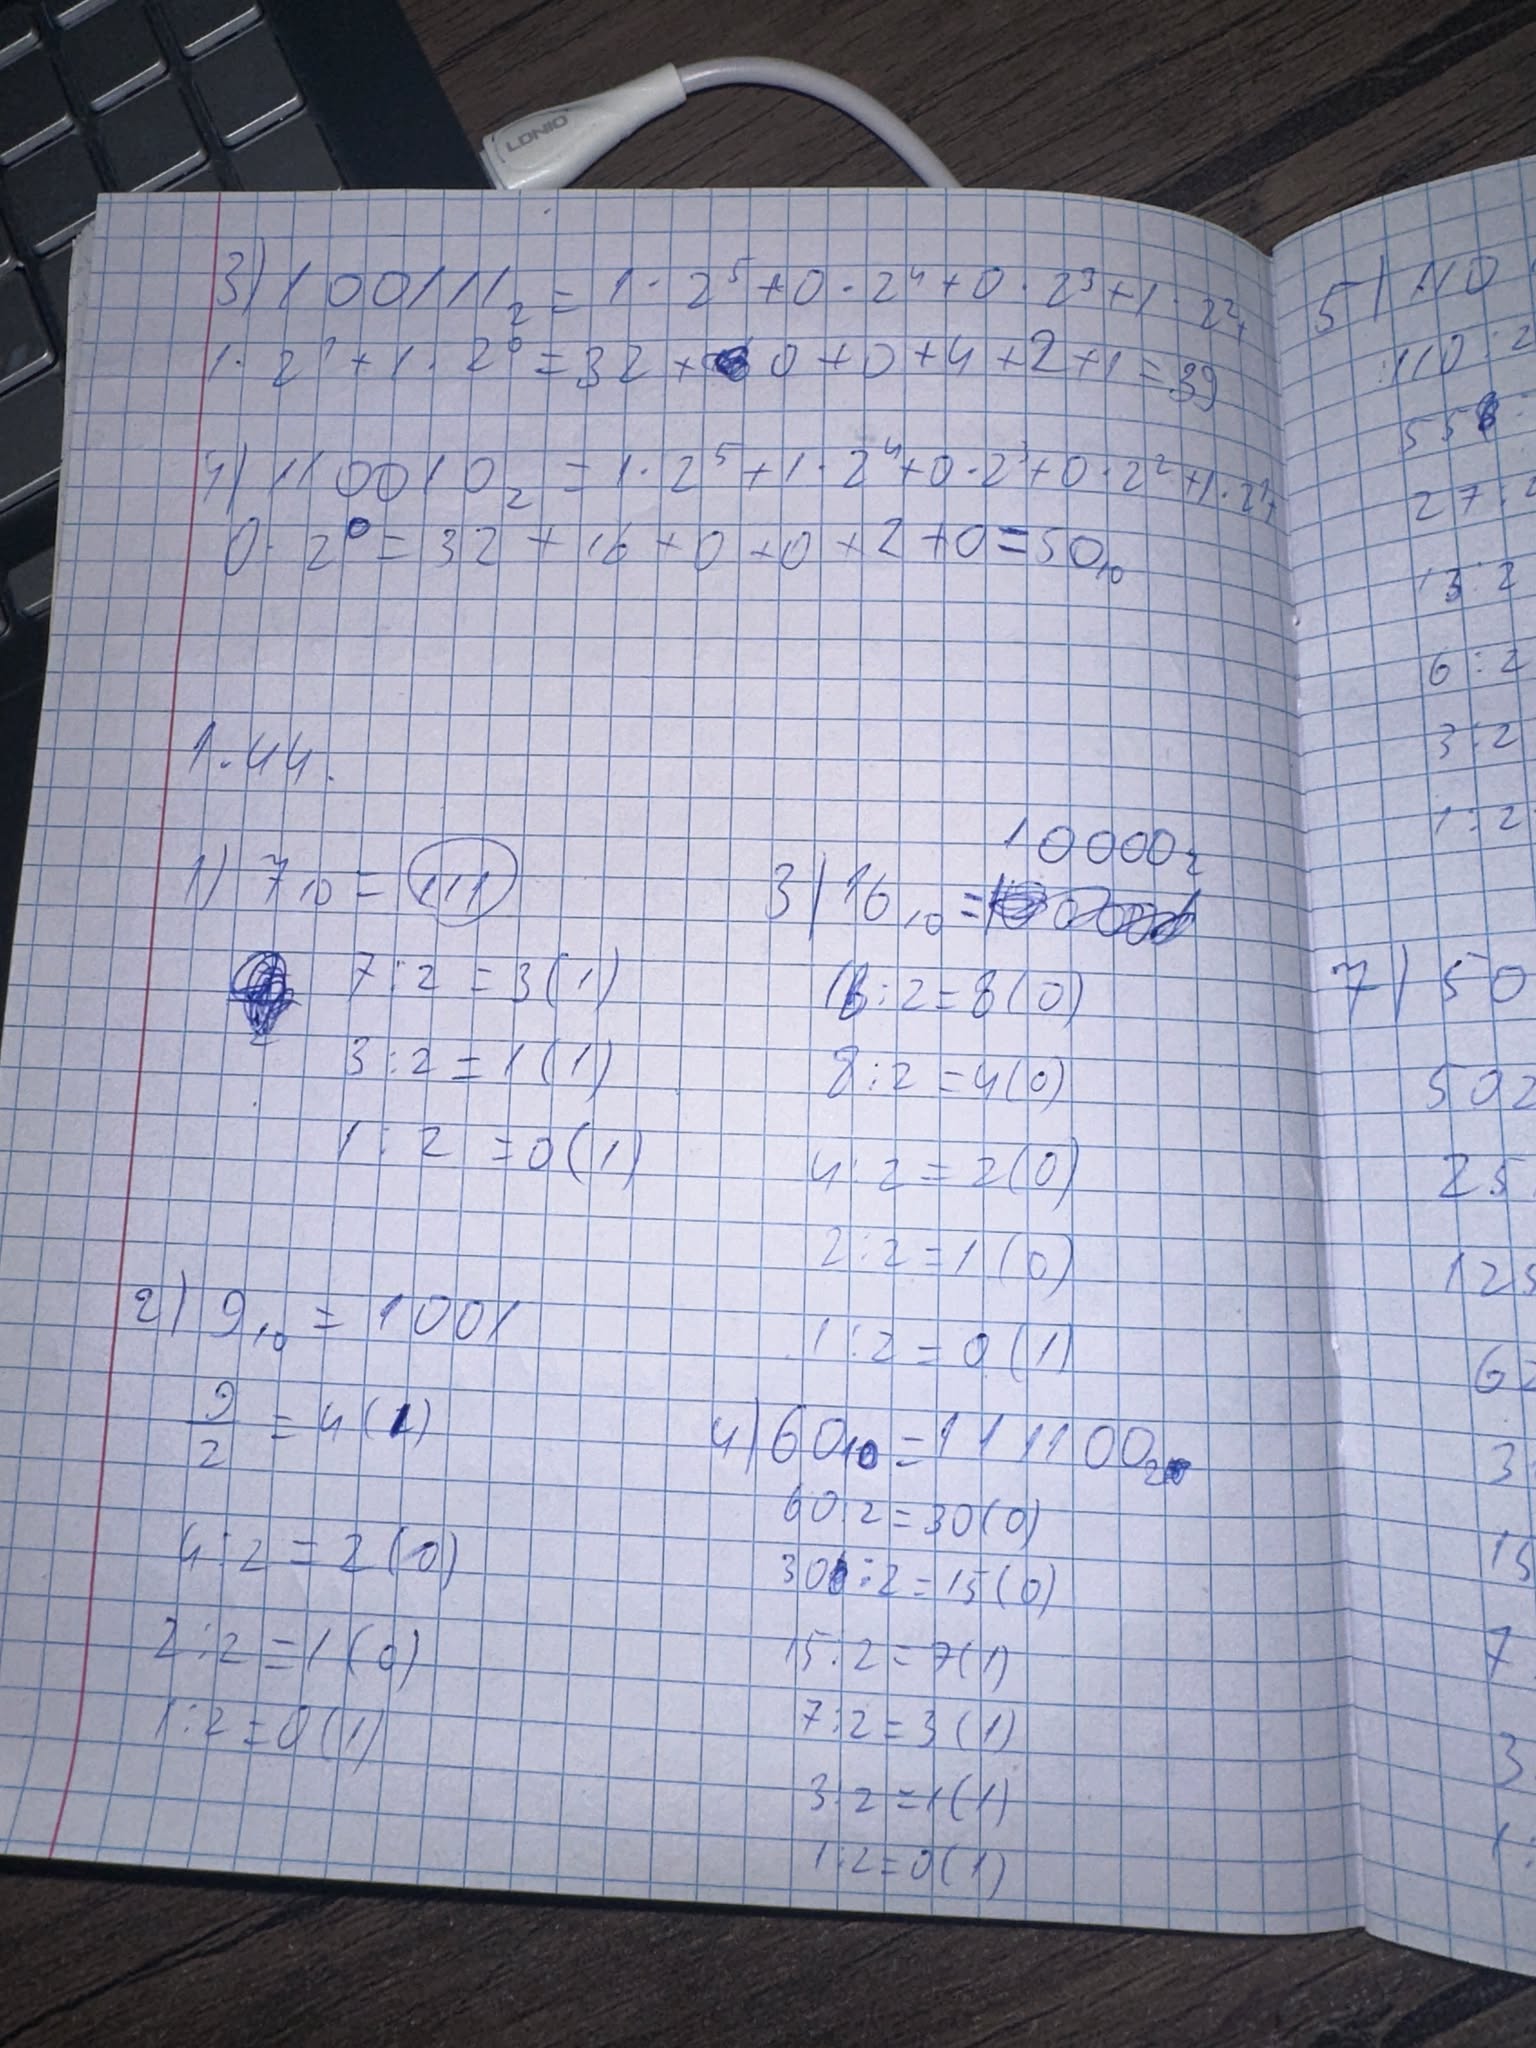 LDNIO
3) 100111₂ = 1·2⁵+0·2⁴+0·2³+1·2²+
1·2¹+1·2⁰=32+0+0+4+2+1=39
4) 110010₂ =1·2⁵+1·2⁴+0·2³+0·2²+1·2¹+
0·2⁰=32+16+0+0+2+0=50₁₀
1.44.
1) 7₁₀ = 111
7:2=3(1)
3:2=1(1)
1:2=0(1)
2) 9₁₀ = 1001
9/2 = 4(1)
4:2=2(0)
2:2=1(0)
1:2=0(1)
10000₂
3) 16₁₀ =
16:2=8(0)
8:2=4(0)
4:2=2(0)
2:2=1(0)
1:2=0(1)
4) 60₁₀ = 111100₂
60:2=30(0)
30:2=15(0)
15:2=7(1)
7:2=3(1)
3:2=1(1)
1:2=0(1)
5) 110
110:2
55:
27:2
13:2
6:2
3:2
1:2
7) 50
502
25
125
62
3
15
7
3
1: